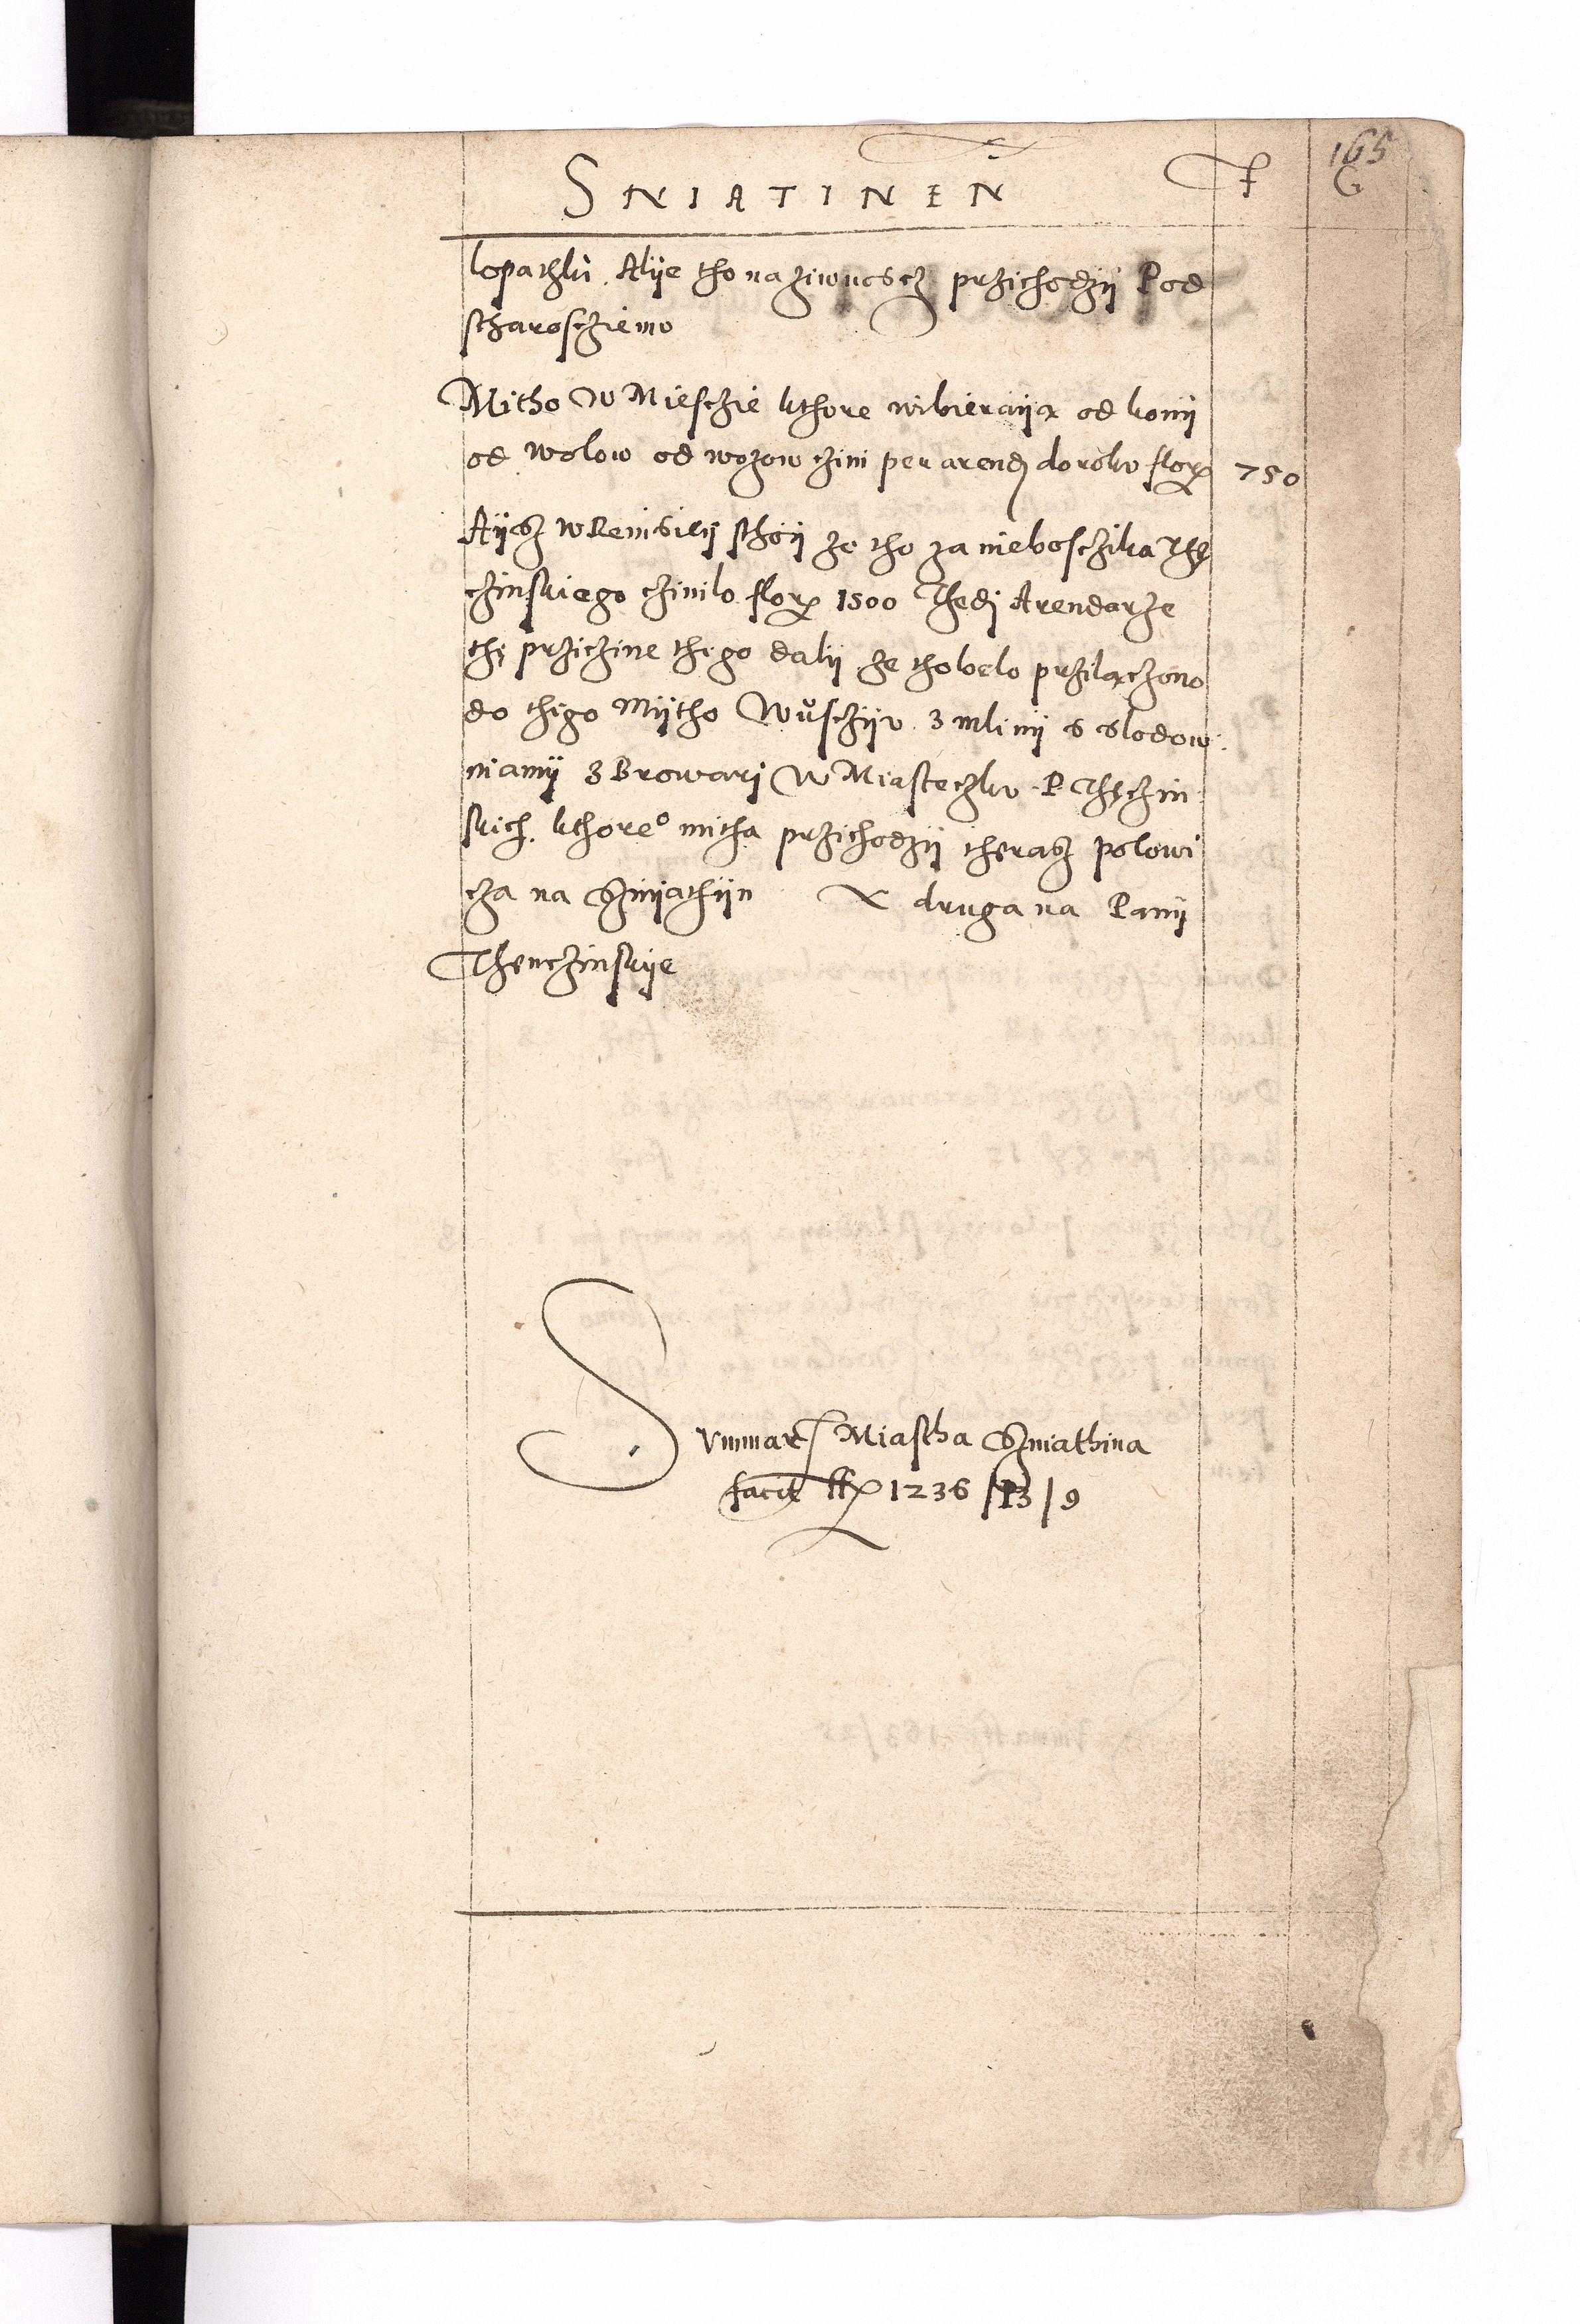 165
SNIATINEN̄ F G
lopathki. Alije tho na ziwnoscz przichodzij Pod
stharoscziemv
Mitho w Miesczie kthore wibieraija od konij
od wolow od wozow czini per arendӡ do rokv florꝭ 750
Aijsz w Remisiej sthoij ze tho za nieboszczika Thę
czinskiego czinilo florꝭ 1500 Thedi Arendarze
thę prziczine thego dalij ze tho belo przilączono
do thego Mijtho W Vsczijv 3 mlinij s slodow
niamij 3 Browarj W Miasteczkv P Thęczin
skich. kthoreº mitha przichodzij therasz polowi
cza na Sznijathijn A druga na Panij
Thenczinskije
Svmmar Miastha Szniathina
facit ffꝭ 1236 /13/9